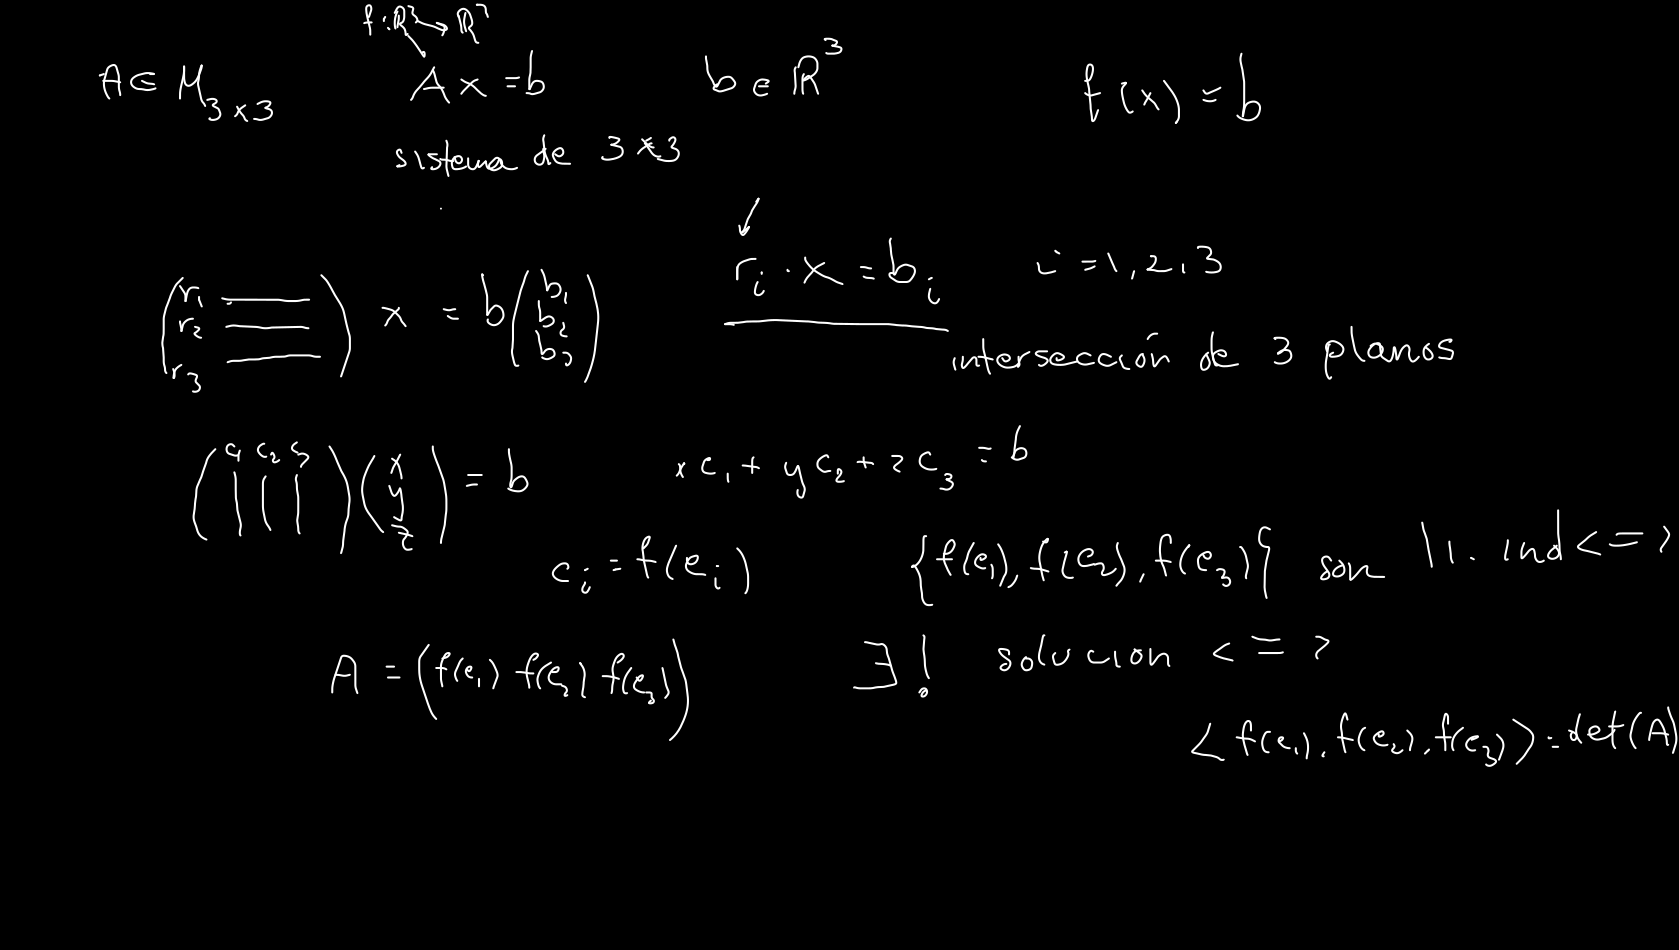 f: ℝ³ → ℝ³
A ∈ M₃ₓ₃ Ax = b b ∈ ℝ³ f(x) = b
sistema de 3×3
r₁ r₂ r₃ x = b b₁ b₂ b₃ rᵢ · x = bᵢ i = 1, 2, 3
intersección de 3 planos
(c₁ c₂ c₃)(x y z) = b xc₁ + yc₂ + zc₃ = b
cᵢ = f(eᵢ) {f(e₁), f(e₂), f(e₃)} son li. ind <=>
A = (f(e₁) f(e₂) f(e₃)) ∃! solucion <=>
<f(e₁), f(e₂), f(e₃)> = det(A)